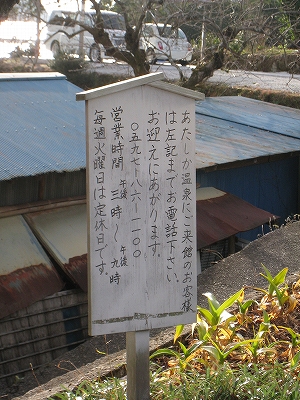 あたしか温泉にご来館のお客様
は左記までお電話下さい。
お迎えにあがります。
〇五九七-八六-一一〇〇
営業時間 午後三時〜午後九時
毎週火曜日は定休日です。